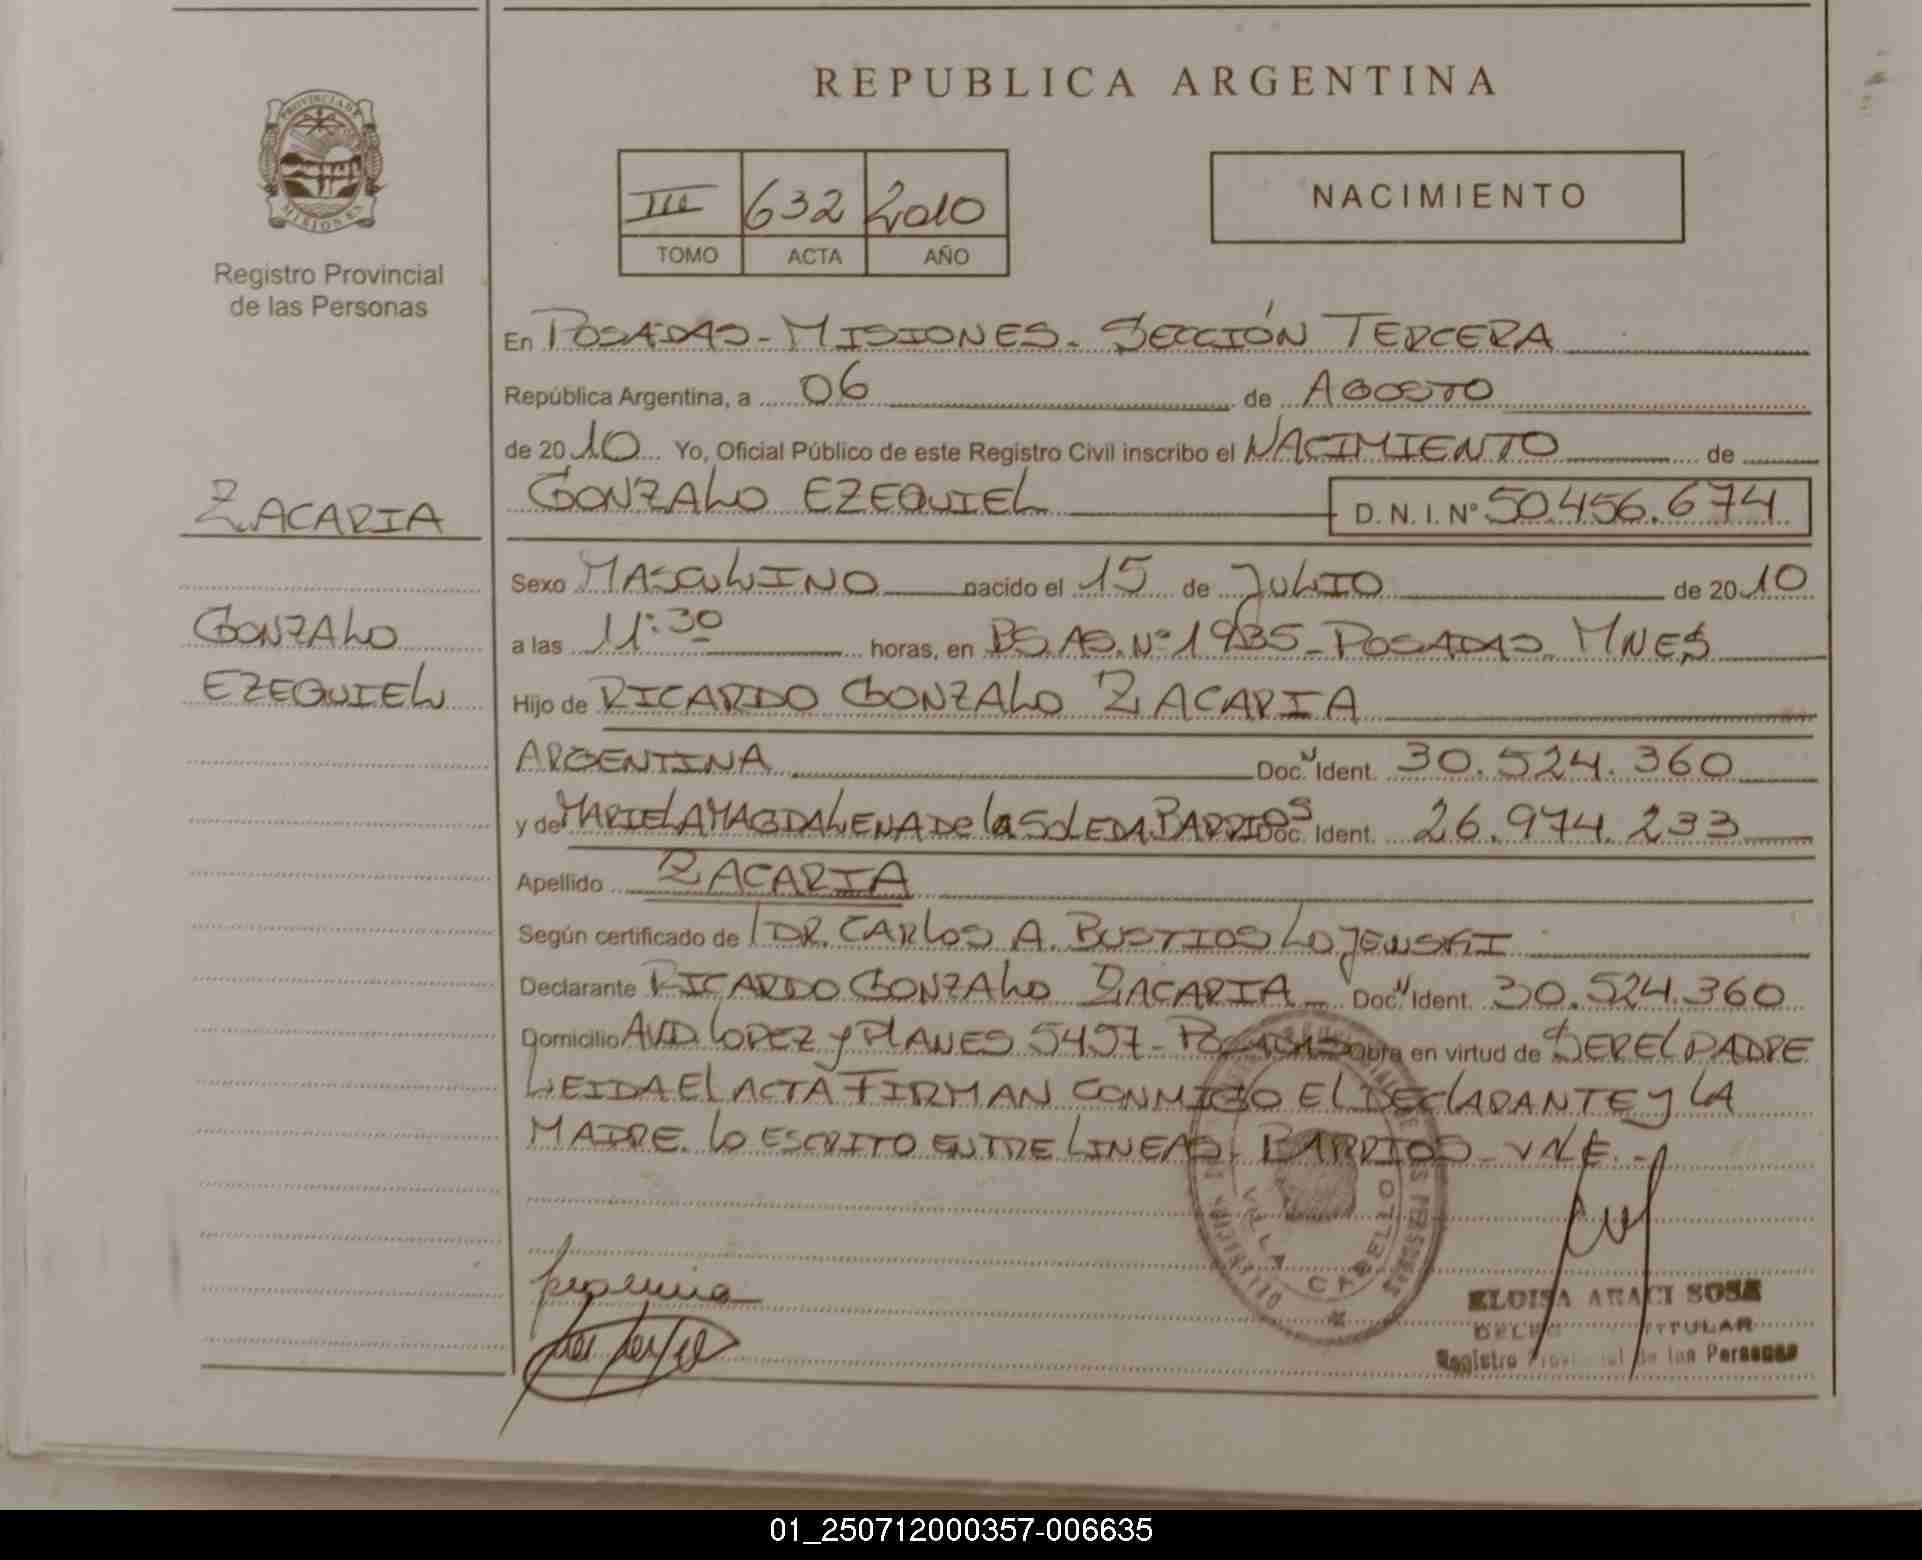 REPUBLICA ARGENTINA
PROVINCIA DE
MISIONES
Registro Provincial
de las Personas
III 632 2010
TOMO ACTA AÑO
NACIMIENTO
En POSADAS - MISIONES. SECCIÓN TERCERA
República Argentina, a 06 de AGOSTO
de 2010 Yo, Oficial Público de este Registro Civil inscribo el NACIMIENTO de
GONZALO EZEQUIEL D. N. I. Nº 50.456.674
ZACARIA
GONZALO
EZEQUIEL
Sexo MASCULINO nacido el 15 de JULIO de 2010
a las 11:30 horas, en BS. AS. Nº 1985 - POSADAS MNES
Hijo de RICARDO GONZALO ZACARIA
ARGENTINA Doc. Ident. 30.524.360
y de MARIELA MAGDALENA DE la SOLEDA BARRIOS Doc. Ident. 26.974.233
Apellido ZACARIA
Según certificado de DR. CARLOS A. BUSTIOS LOJEWSKI
Declarante RICARDO GONZALO ZACARIA Doc. Ident. 30.524.360
Domicilio AVD. LOPEZ y PLANES 5457 - POSADAS Obra en virtud de SER EL PADRE
LEIDA El ACTA FIRMAN CONMIGO EL DECLARANTE y LA
MADRE. lo ESCRITO ENTRE LINEAS: BARRIOS - VALE. -
VILLA CABELLO
ELOISA ARACI SOSA
TITULAR
Registro Provincial de las Personas
01_250712000357-006635